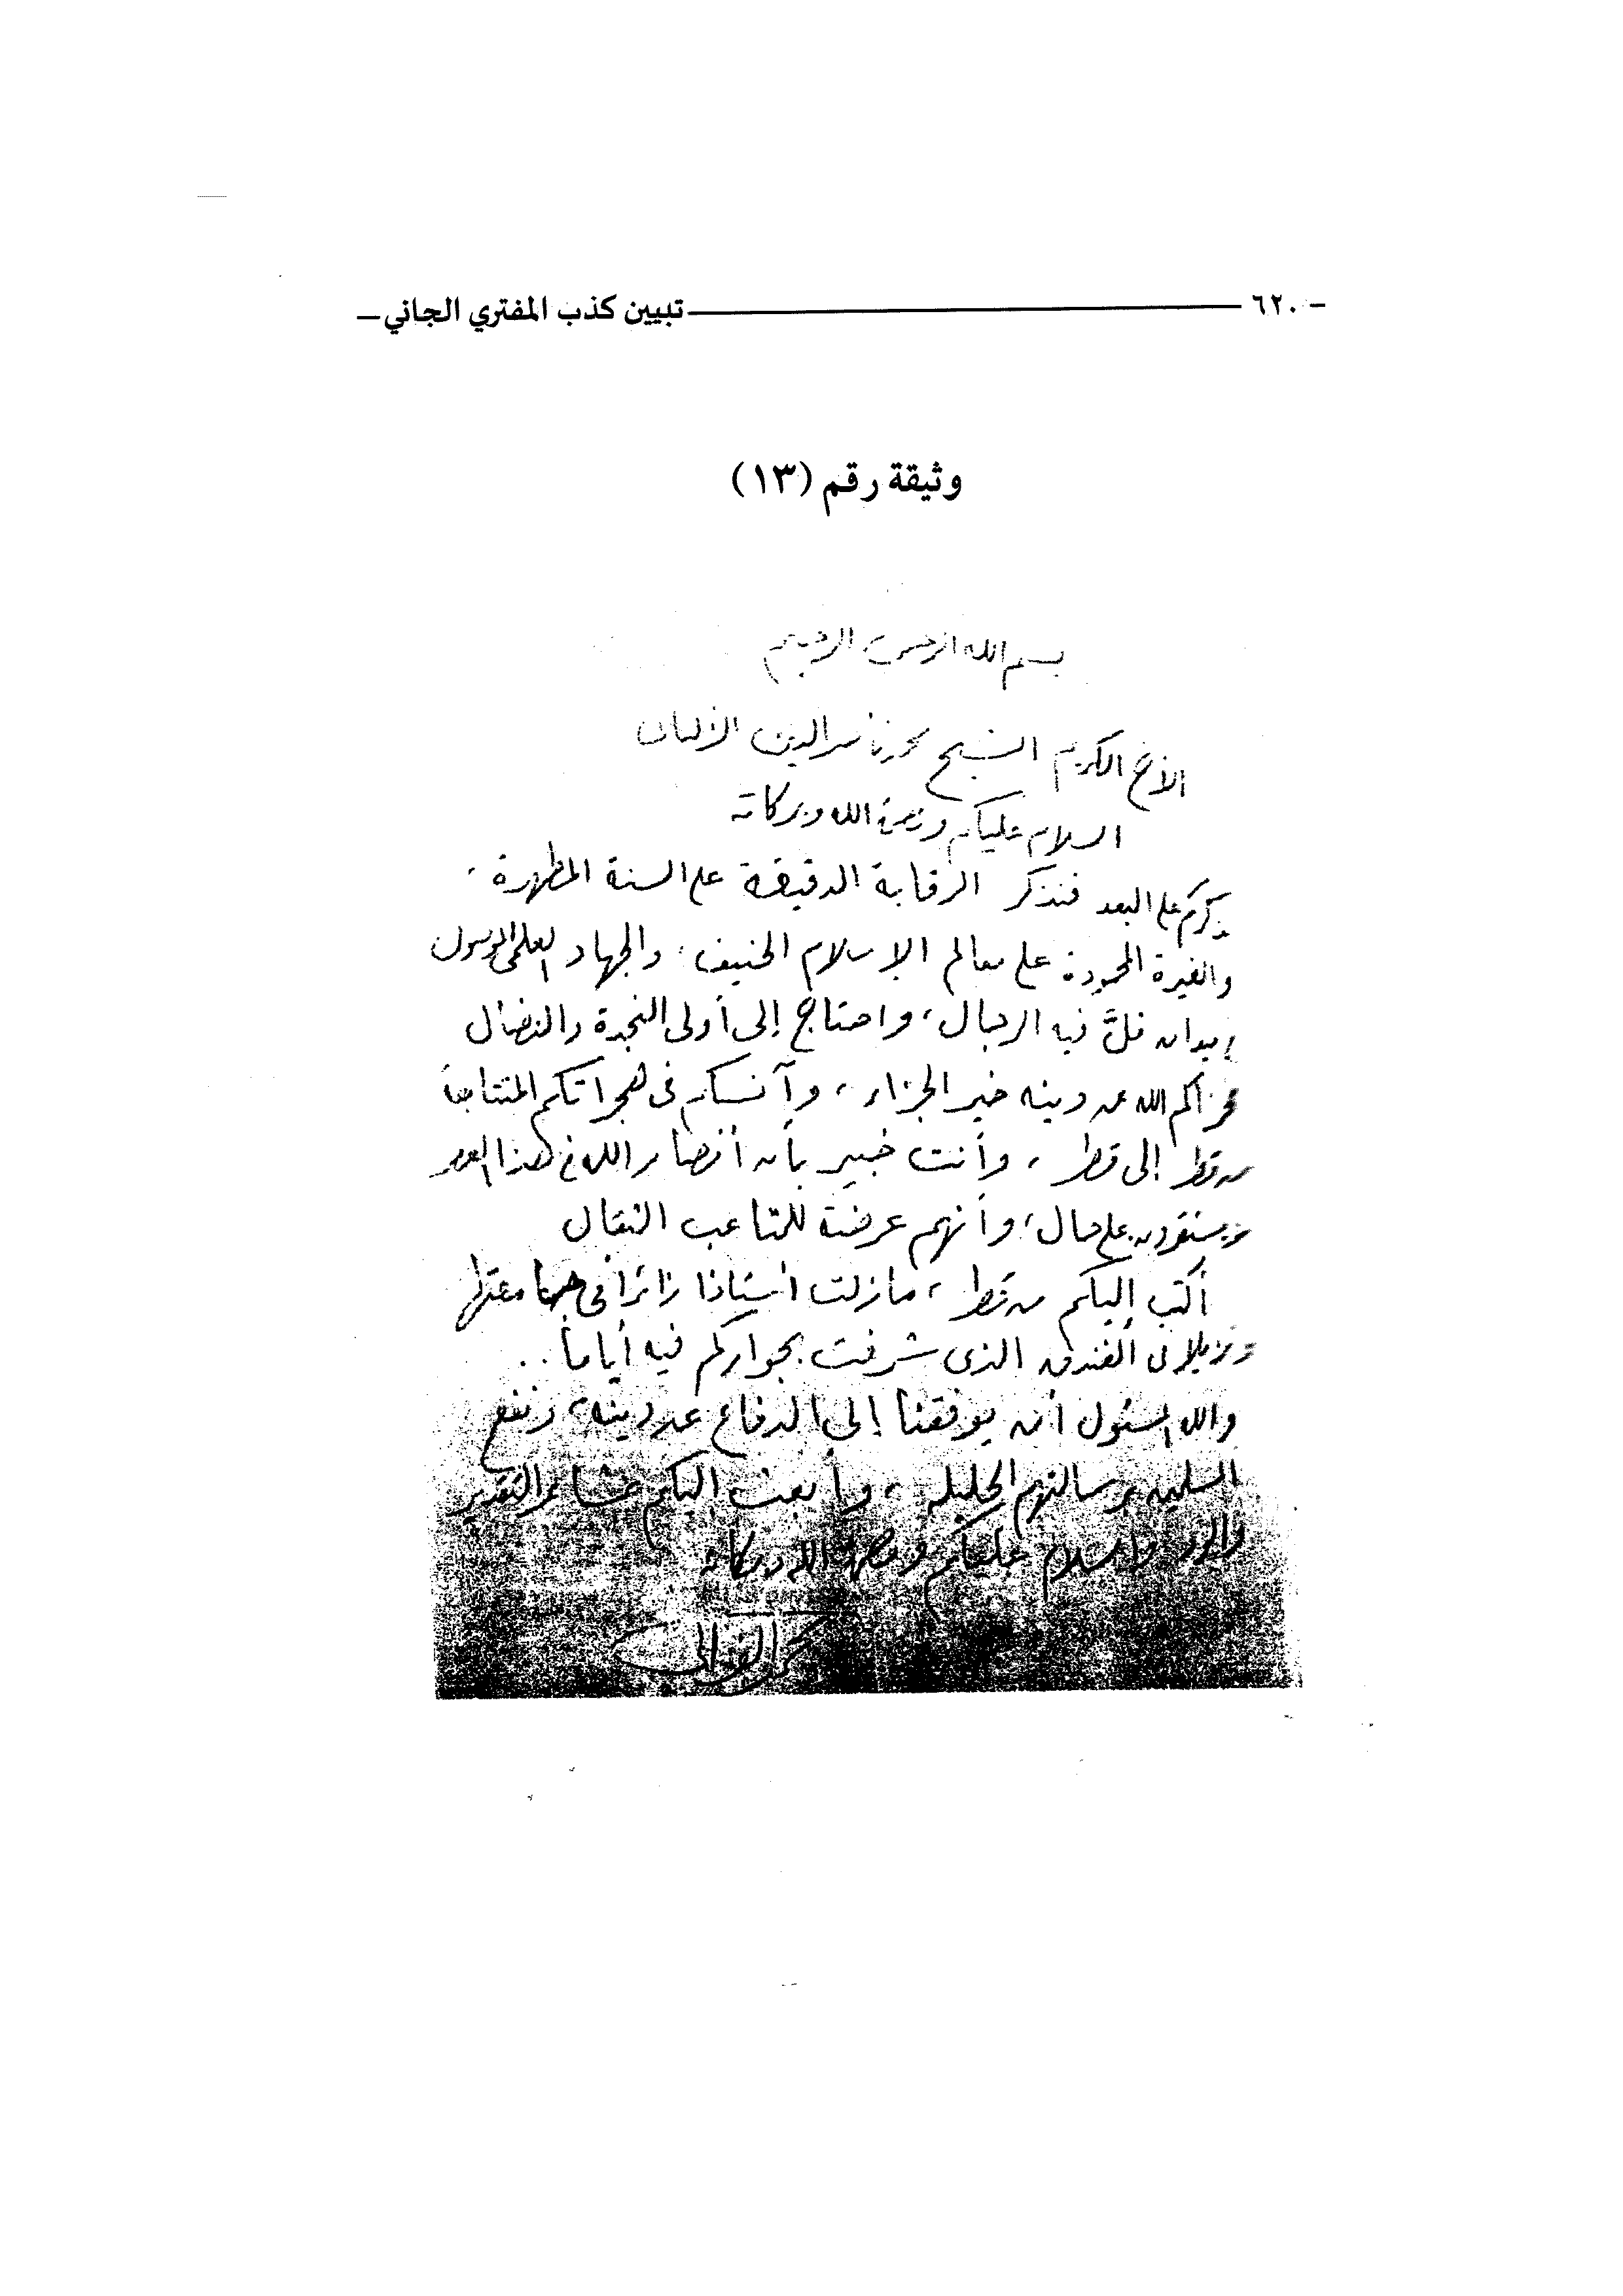 ٦٢٠ تبيين كذب المفتري الجاني
وثيقة رقم (١٣)
بسم الله الرحمن الرحيم
الأخ الكريم الشيخ محمد ناصر الدين الألبانى
السلام عليكم ورحمة الله وبركاته
على البعد فنذكر الرقابة الدقيقة على السنة المطهرة،
والغيرة المحمودة على معالم الإسلام الحنيف، والجهاد العلمى
ميدان قلَّ فيه الرجال، واحتاج إلى أولى النجدة والنضال
فجزاكم الله عن دينه خير الجزاء، وآنسكم فى هجراتكم المتتابعة
من قطر إلى قطر، وأنت خبير بأن أنصار الله فى هذا العصر
على حال، وأنهم عرضة للمتاعب الثقال
أكتب إليكم من قطر، مازلت أستاذا زائرا فى جامعتها
ونزيلا فى الفندق الذى شرفت بجواركم فيه أياماً..
والله المسئول أن يوفقنا إلى الدفاع عن دينه، ونفع
المسلمين برسالتهم الجليلة، وأبعث إليكم مشاعر التقدير
والود والسلام عليكم ورحمة الله وبركاته
محمد الغزالى